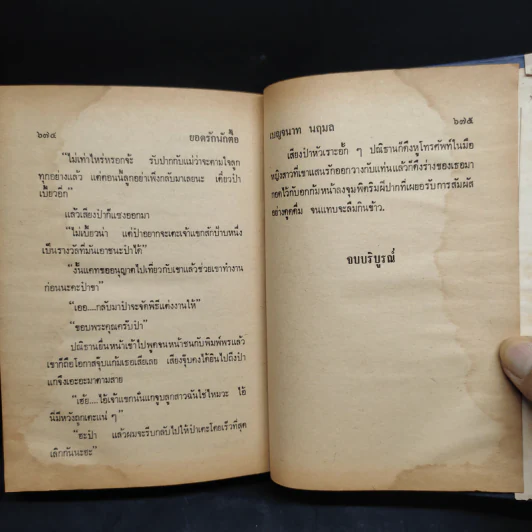 ๖๗๔
ยอดรักนักตื๊อ
"ไม่เท่าไหร่หรอกจ้ะ รับปากกับแม่ว่าจะตามใจลูก
ทุกอย่างแล้ว แต่ตอนนี้ลูกอย่าเพิ่งกลับมาเลยนะ เดี๋ยวป๋า
เบี้ยวอีก"
แล้วเสียงป๋าก็แซงออกมา
"ไม่เบี้ยวน่า แต่ป๋าอยากจะเตะเจ้าแขกสักป้าบหนึ่ง
เป็นรางวัลที่มันเอาชนะป๋าได้"
"งั้นแคทขออนุญาตไปเที่ยวกับเขาแล้วช่วยเขาทำงาน
ก่อนนะคะป๋าขา"
"เออ....กลับมาป๋าจะจัดพิธีแต่งงานให้"
"ขอบพระคุณครับป๋า"
ปณิธานยื่นหน้าเข้าไปพูดจนหน้าชนกับพิมพ์พรแล้ว
เขาก็ถือโอกาสจุ๊บแก้มเธอเสียเลย เสียงจุ๊บคงได้ยินไปถึงป๋า
แกจึงเอะอะมาตามสาย
"เฮ้ย....ไอ้เจ้าแขกนั่นแกจูบลูกสาวฉันใช่ไหมวะ ไอ้
นี่มีหวังถูกเตะแน่ ๆ"
"ฮะป๋า แล้วผมจะรีบกลับไปให้ป๋าเตะโดยเร็วที่สุด
เลิกกันนะฮะ"
เบญจนาท นฤมล
๖๗๕
เสียงป๋าหัวเราะฮั่ก ๆ ปณิธานก็ดึงหูโทรศัพท์ในมือ
หญิงสาวที่เขาแสนรักออกวางกับแท่นแล้วก็ดึงร่างของเธอมา
กอดไว้กับอกก้มหน้าลงจุมพิตริมฝีปากที่เผยอรับการสัมผัส
อย่างดูดดื่ม จนแทบจะลืมกินข้าว.
จบบริบูรณ์